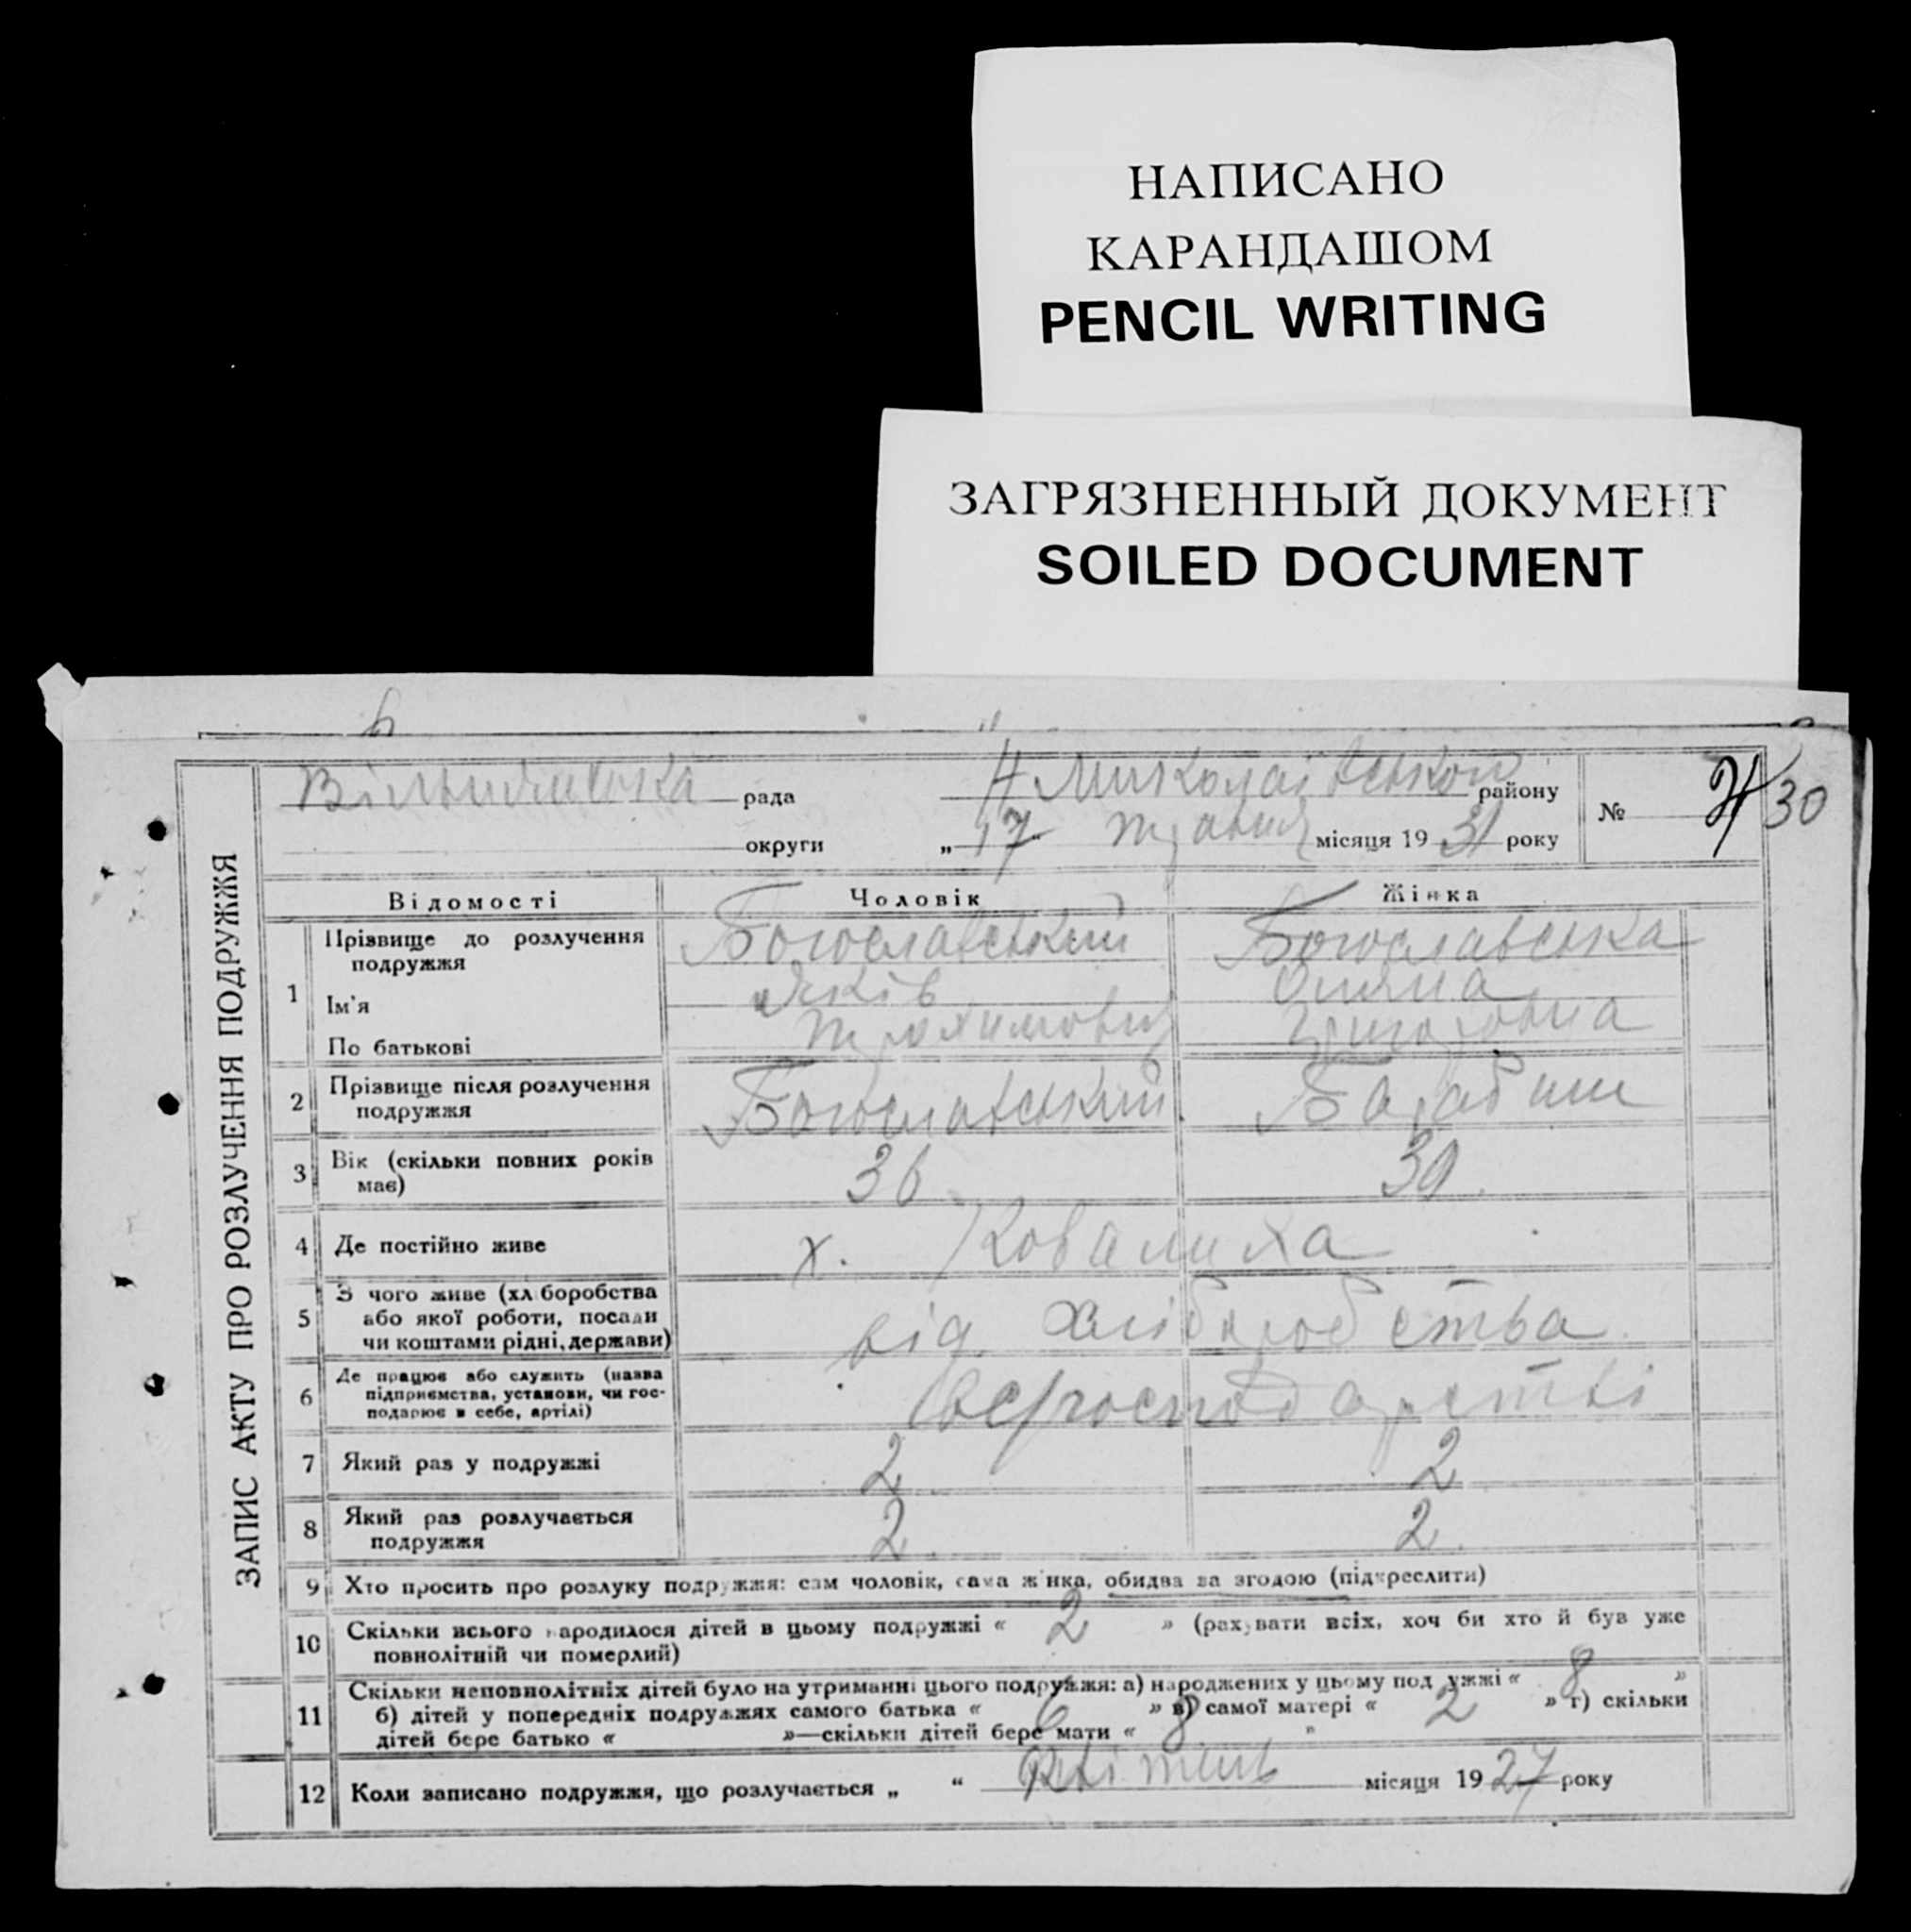 НАПИСАНО
КАРАНДАШОМ
PENCIL WRITING
ЗАГРЯЗНЕННЫЙ ДОКУМЕНТ
SOILED DOCUMENT
ЗАПИС АКТУ ПРО РОЗЛУЧЕННЯ ПОДРУЖЖЯ
рада Н Миколаївської району
округи „17“ травня місяця 19 31 року
№ 30
Відомості Чоловік Жінка
1 Прізвище до розлучення подружжя Богославський Богославська
Ім'я Яків
По батькові Трохимович Григоровна
2 Прізвище після розлучення подружжя Богославський Барабаш
3 Вік (скільки повних років має) 36 39.
4 Де постійно живе х. Ковалиха
5 З чого живе (хліборобства або якої роботи, посади чи коштами рідні, держави) від хліборобства
6 Де працює або служить (назва підприємства, установи, чи господарює в себе, артілі) господарстві
7 Який раз у подружжі 2 2
8 Який раз розлучається подружжя 2. 2.
9 Хто просить про розлуку подружжя: сам чоловік, сама жінка, обидва за згодою (підкреслити)
10 Скільки всього народилося дітей в цьому подружжі « 2 » (рахувати всіх, хоч би хто й був уже
повнолітній чи померлий)
11 Скільки неповнолітніх дітей було на утриманні цього подружжя: а) народжених у цьому подружжі « »
б) дітей у попередніх подружжях самого батька « 6 » в) самої матері « 2 » г) скільки
дітей бере батько « »—скільки дітей бере мати « »
12 Коли записано подружжя, що розлучається „ “ Квітень місяця 19 27 року